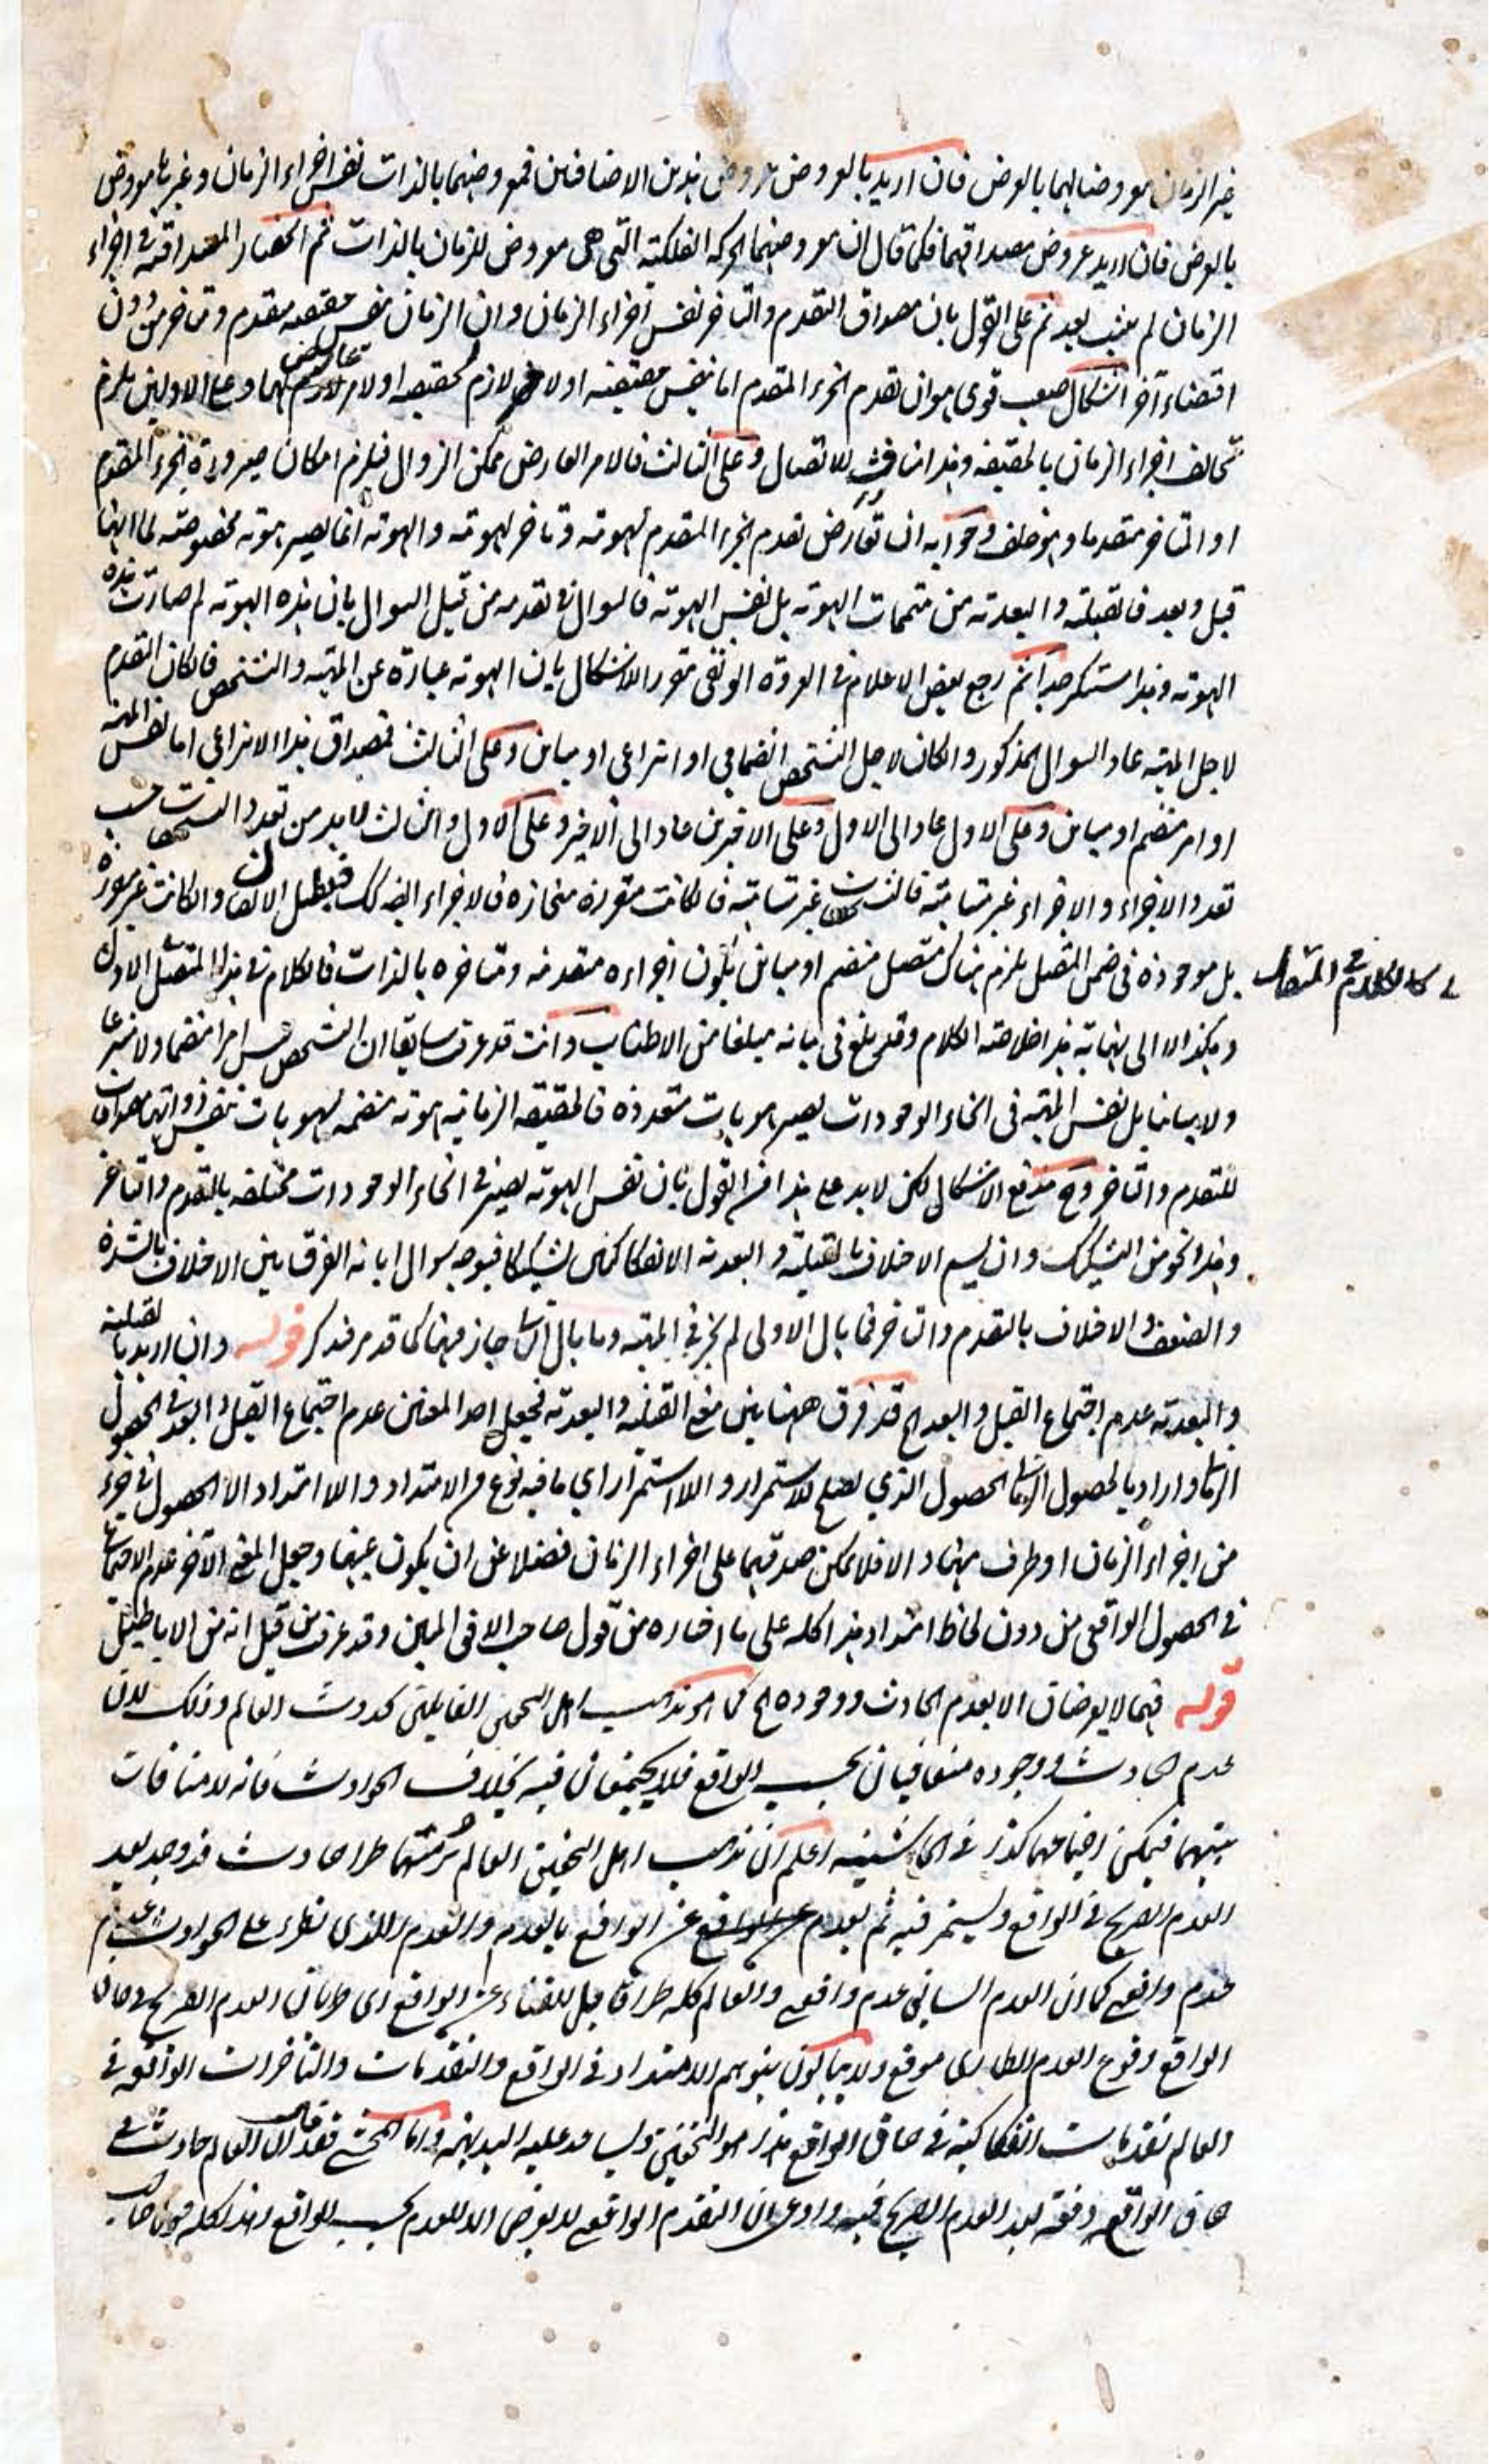 غير الزمان معروضا لهما بالعرض فان اريد بالعروض عروض هذين الاضافتين فمعروضهما بالذات نفس اجزاء الزمان وغيرها معروض
بالعرض فان اريد عروض مصداقهما فكما قال ان معروضهما الحركة الفلكية التي هي معروض للزمان بالذات ثم انحصار المصداقية في اجزاء
الزمان لم يثبت بعد ثم على القول بان مصداق التقدم والتاخر نفس اجزاء الزمان وان الزمان نفس حقيقته متقدم ومتاخر من دون
اقتضاء آخر اشكال صعب قوي هو ان تقدم الجزء المتقدم اما بنفس حقيقته اولامر لازم لحقيقته اولامر عارض لهما وعلى الاولين يلزم
تخالف اجزاء الزمان بالحقيقة وهذا مناف للاتصال وعلى الثالث فالامر العارض ممكن الزوال فيلزم امكان صيرورة الجزء المتقدم
او المتاخر متقدما وهو خلف وجوابه ان تعارض تقدم الجزء المتقدم لهويته وتاخر لهويته والهوية انما يصير هوية مخصوصة لما انها
قبل وبعد فالقبلية والبعدية من متممات الهوية بل نفس الهوية فالسوال في تقدمه من قبيل السوال بان هذه الهوية لم صارت هذه
الهوية وهذا مستنكر جدا ثم رجع بعض الاعلام في العروة الوثقى مقررا لاشكال بان الهوية عبارة عن المهية والتشخص فالكان التقدم
لاجل المهية عاد السوال المذكور والكان لاجل التشخص انضمامي او انتزاعي او مباين وعلى الثالث فمصداق هذا الانتزاعي اما نفس المهية
او امر منضم او مباين وعلى الاول عاد الى الاول وعلى الاخيرين عاد الى الاخير وعلى الاول والثالث لابد من تعدد التشخصات حسب
تعدد الاجزاء والاجزاء غير متناهية فالتشخصات غير متناهية فالكانت متقررة منحازة فالاجزاء ايضا كك فيبطل الاتصال والكانت غير متقررة
بل موجودة في ضمن المتصل يلزم هناك متصل منضم او مباين يكون اجزاءه متقدمة ومتاخرة بالذات فالكلام في هذا المتصل الاول
وهكذا الا الى نهاية هذا خلاصة الكلام وقد بلغ في بيانه مبلغا من الاطناب وانت قد عرفت سابقا ان التشخص ليس امرا منضما ولا منتزعا
ولا مباينا بل نفس المهية في انحاء الوجودات يصير هويات متعددة فالحقيقة الزمانية هوية منضمة لهويات بنفس ذواتها مصداقات
للتقدم والتاخر وح مندفع الاشكال لكن لابد على هذا من القول بان نفس الهوية يصير في انحاء الوجودات مختلفة بالتقدم والتاخر
وهذا نحو من التشكيك وان ليسم الاختلاف بالقبلية والبعدية الانفكاكيتين تشكيكا فيوجه سوال ابانة الفرق بين الاختلاف بالشدة
والضعف والاختلاف بالتقدم والتاخر فما بال الاولى لم يجز في المهية وما بال الثانى جاز فيها كما قد مر فتذكر قوله وان اريد بالقبلية
والبعدية عدم اجتماع القبل والبعد الخ قد فرق ههنا بين معنى القبلية والبعدية فجعل احد المعنين عدم اجتماع القبل والبعد في الحصول
الزمانى واراد بالحصول الزمانى الحصول الذي يصلح للاستمرار واللااستمرار اي ما فيه نوع من الامتداد واللاامتداد لا الحصول في جزء
من اجزاء الزمان او طرف منها والا فلا يمكن صدقهما على اجزاء الزمان فضلا عن ان يكون عينها وجعل المعنى الآخر عدم الاجتماع
في الحصول الواقعي من دون لحاظ امتداد هذا كله على ما اختاره من قول صاحب الافق المبين وقد عرفت من قبل انه من الاباطيل
قوله فهما لا يعرضان الا بعدم الحادث ووجوده الخ كما هو مذهب اهل التحقيق القائلين بحدوث العالم وذلك لان
عدم الحادث ووجوده متنافيان بحسب الواقع فلا يجتمعان فيه بخلاف الحوادث فانه لا منافات
بينهما فيمكن اجتماعهما كذا في الحاشية اعلم ان مذهب اهل التحقيق العالم برمتها طرا حادث قد وجد بعد
العدم الصريح في الواقع ويستمر فيه ثم يعدم عن الواقع بالعدم والعدم الذي يطرء على الحوادث عدم
عدم واقعي كما ان العدم السابق عدم واقعي والعالم كله طرا قابل للفناء عن الواقع اي طريان العدم الصريح في حاق
الواقع وقوع العدم الطاري موقع ولا يبالون بتوهم الامتداد في الواقع والتقدمات والتاخرات الواقعة في
العالم تقدمات انفكاكية في حاق الواقع هذا هو التحقيق ويساعد عليه البديهة واما المحشي فقد قال ان العالم حادث في
حاق الواقع دفعة بعد العدم الصريح فيه وادعى ان التقدم الواقعي لا يعرض الا للعدم بحسب الواقع وهذا كله قول صاحب